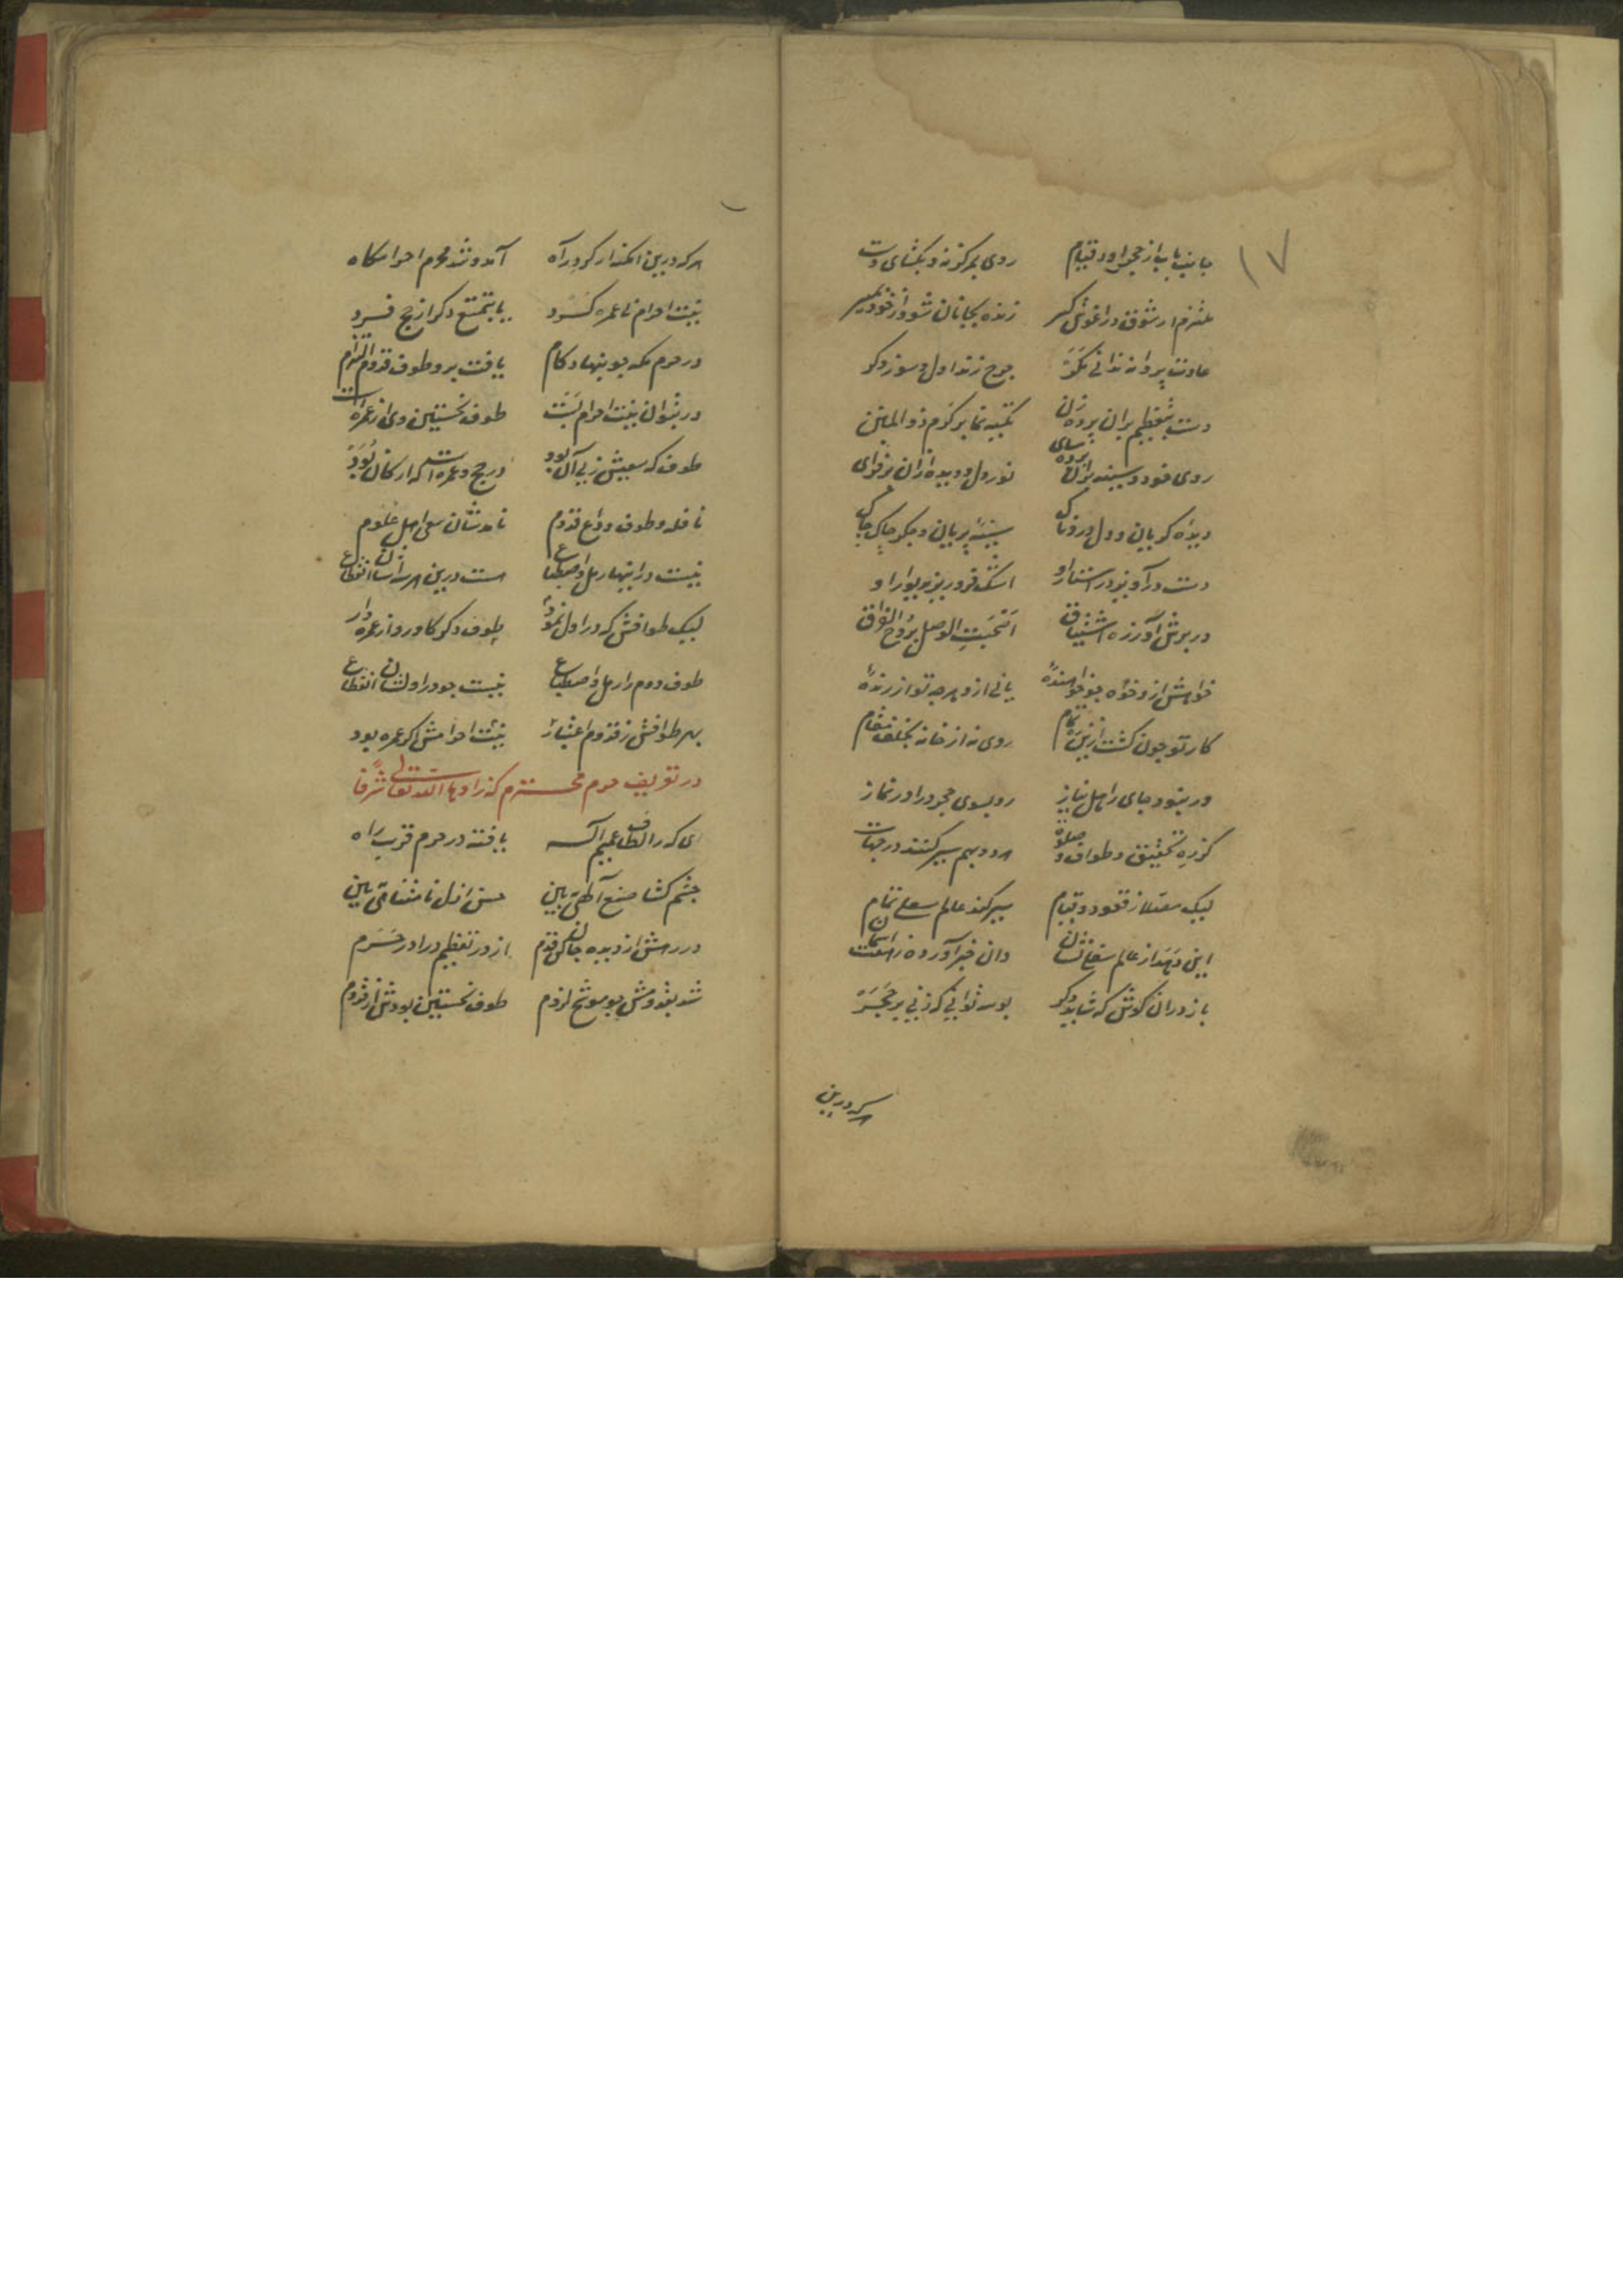 ۱۷
جانب باب از حجر اور قیام روی بمرکز نه و بکشای دست
ملتزم از شوق در آغوش گیر زنده بجانان شو و از خود بمیر
عادت پروانه ندانی مگر چرخ زند اول و سوزد دگر
دست بتعظیم بران پرده زن تکیه نما بر کرم ذو المنن
روی خود و سینه بران پرده سای نور دل و دیده ازان برفزای
دیده گریان و دل دردناک سینه بریان و جگر چاک چاک
دست در آویز در استار او اشک فرو ریز بدیوار او
در برش آور زره اشتیاق انتخبت الوصل بروح الفراق
خواهش ازو خواه چو خواهنده یابی ازو هرچه تو ارزنده
کار تو چون گشت ازین ره تمام روی نه از خانه بخلف مقام
ور نبود جای ز اهل نیاز رو بسوی حجر و درا در نماز
گر ره تحقیق و طواف و صلوة هر دو بهم سیر کنند در جهات
لیک مصلا ز قعود و قیام سیر کند عالم سفلی تمام
این دهد از عالم سفلی نشان وان خبر آورده ز هفت آسمان
باز دران کوش که شاید دگر بوسه توانی که زنی بر حجر
هر که درین
هر که درین امکنه از گرد راه آمد و شد محرم احرامگاه
نیت احرام تا عمره کرد یا بتمتع دگر از حج فرد
در حرم مکه چو بنهاد گام یافت برو طوف قدوم التزام
در بتوان نیت احرام بست طوف نخستین وی از عمره است
طوف که سعیش ز پی آن بود در حج و عمره است که ارکان بود
نافله و طوف وداع قدوم نامدشان سعی ز اهل علوم
نیست در اینها رمل و اضطباع هست درین هر سه ایشان انقطاع
لیک طوافش که در اول نمود طوف دگر گاورد از عمره وار
طوف دوم را رمل و اضطباع نیست چو در اولشان انقطاع
بهر طوافش ز قدوم اعتبار نیت احرامش اگر عمره بود
در تعریف حرم محترم که زادها الله تعالی شرفا
ای که ز الطاف عمیم اله یافته در حرم قرب راه
چشم گشا صنع الهی ببین حسن ازل نامتناهی ببین
در رهش از دیده جان کن قدم از در تعظیم درا در حرم
شد بقدومش چو موشح لزوم طوف نخستین بودش از قدوم